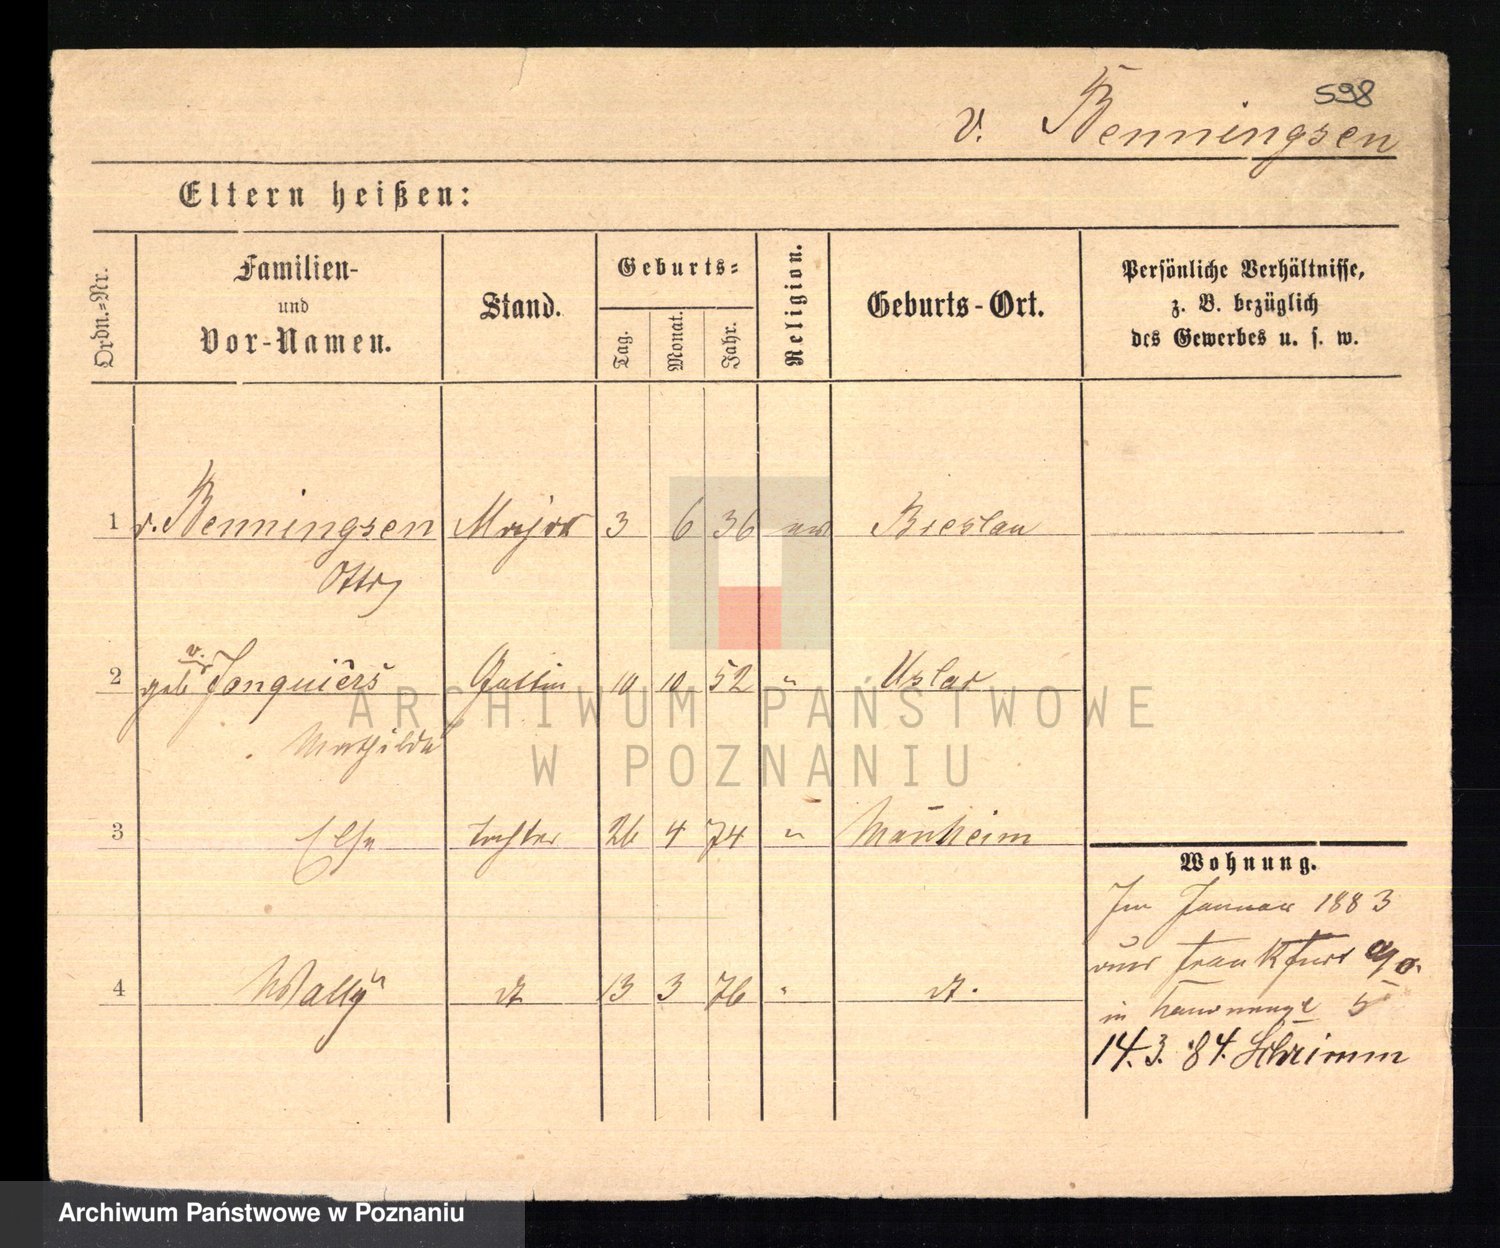 598
v. Benningsen
Eltern heißen:
Ordn.-Nr.
Familien-
und
Vor-Namen.
Stand.
Geburts-
Tag.
Monat.
Jahr.
Religion.
Geburts-Ort.
Persönliche Verhältnisse,
z. B. bezüglich
des Gewerbes u. s. w.
1 v. Benningsen Major 3 6 36 ev Breslau
Otto
2 geb v. Jonquiérs Gattin 10 10 52 " Uslar
Mathilde
3 Else tochter 26 4 74 " Manheim
4 Wally dt 13 3 76 " dt.
Wohnung.
Im Januar 1883
aus Frankfurt a/o.
in 5
14.3.84. Schrimm
ARCHIWUM PAŃSTWOWE
W POZNANIU
Archiwum Państwowe w Poznaniu